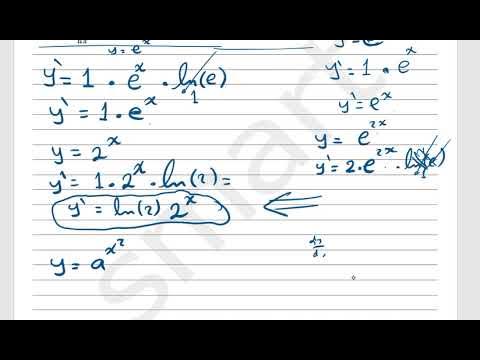 y = eˣ
y' = 1 · eˣ · ln(e)
1
y' = 1 · eˣ
y = 2ˣ
y' = 1 · 2ˣ · ln(2) =
y' = ln(2) 2ˣ
y = a^x²
y' = 1 · eˣ
y' = eˣ
y = e²ˣ
y' = 2 · e²ˣ · ln(e)
smart